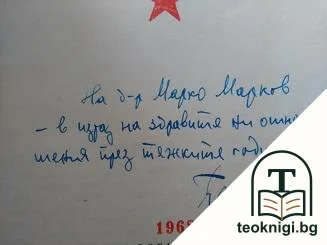 На д-р Марко Марков
– в израз на здравите ни отно-
шения през тежките годи
196
T
teoknigi.bg